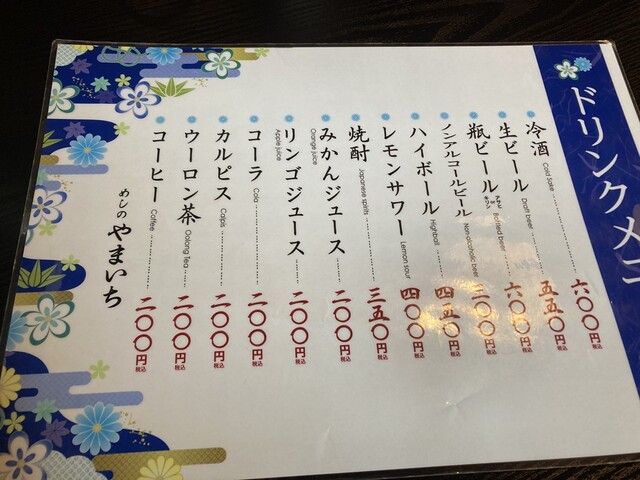 ドリンクメニ
冷酒 Cold Sake 六〇〇円税込
生ビール Draft beer 五五〇円税込
瓶ビール アサヒ or キリン Bottled beer 六〇〇円税込
ノンアルコールビール Non-alcoholic beer 三〇〇円税込
ハイボール Highball 四五〇円税込
レモンサワー Lemon sour 四〇〇円税込
焼酎 Japanese spirits 三五〇円税込
みかんジュース Orange juice 二〇〇円税込
リンゴジュース Apple juice 二〇〇円税込
コーラ Cola 二〇〇円税込
カルピス Calpis 二〇〇円税込
ウーロン茶 Oolong Tea 二〇〇円税込
コーヒー Coffee 二〇〇円税込
めしの やまいち